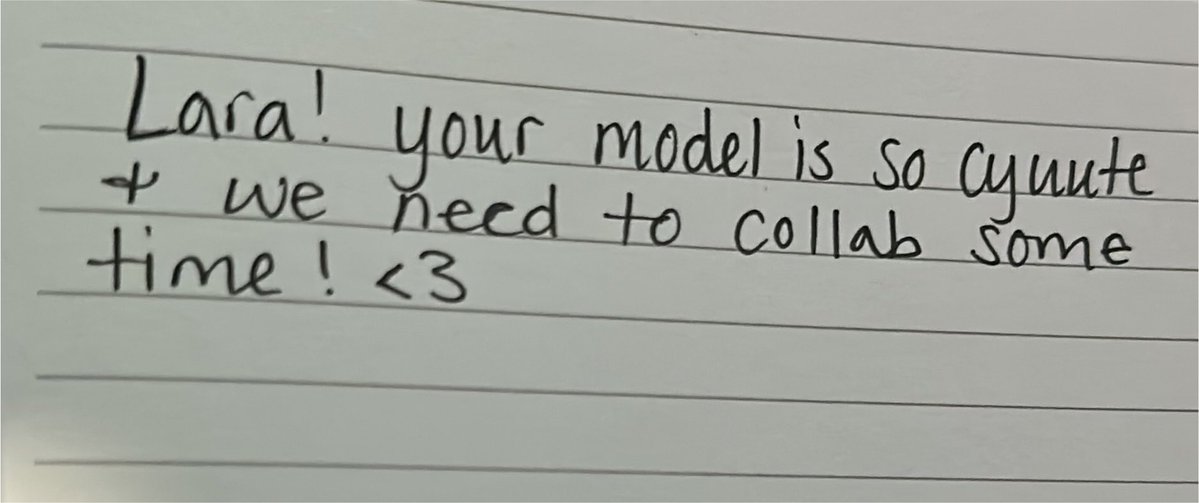 Lara! your model is so cyuute
+ we need to collab some
time! <3